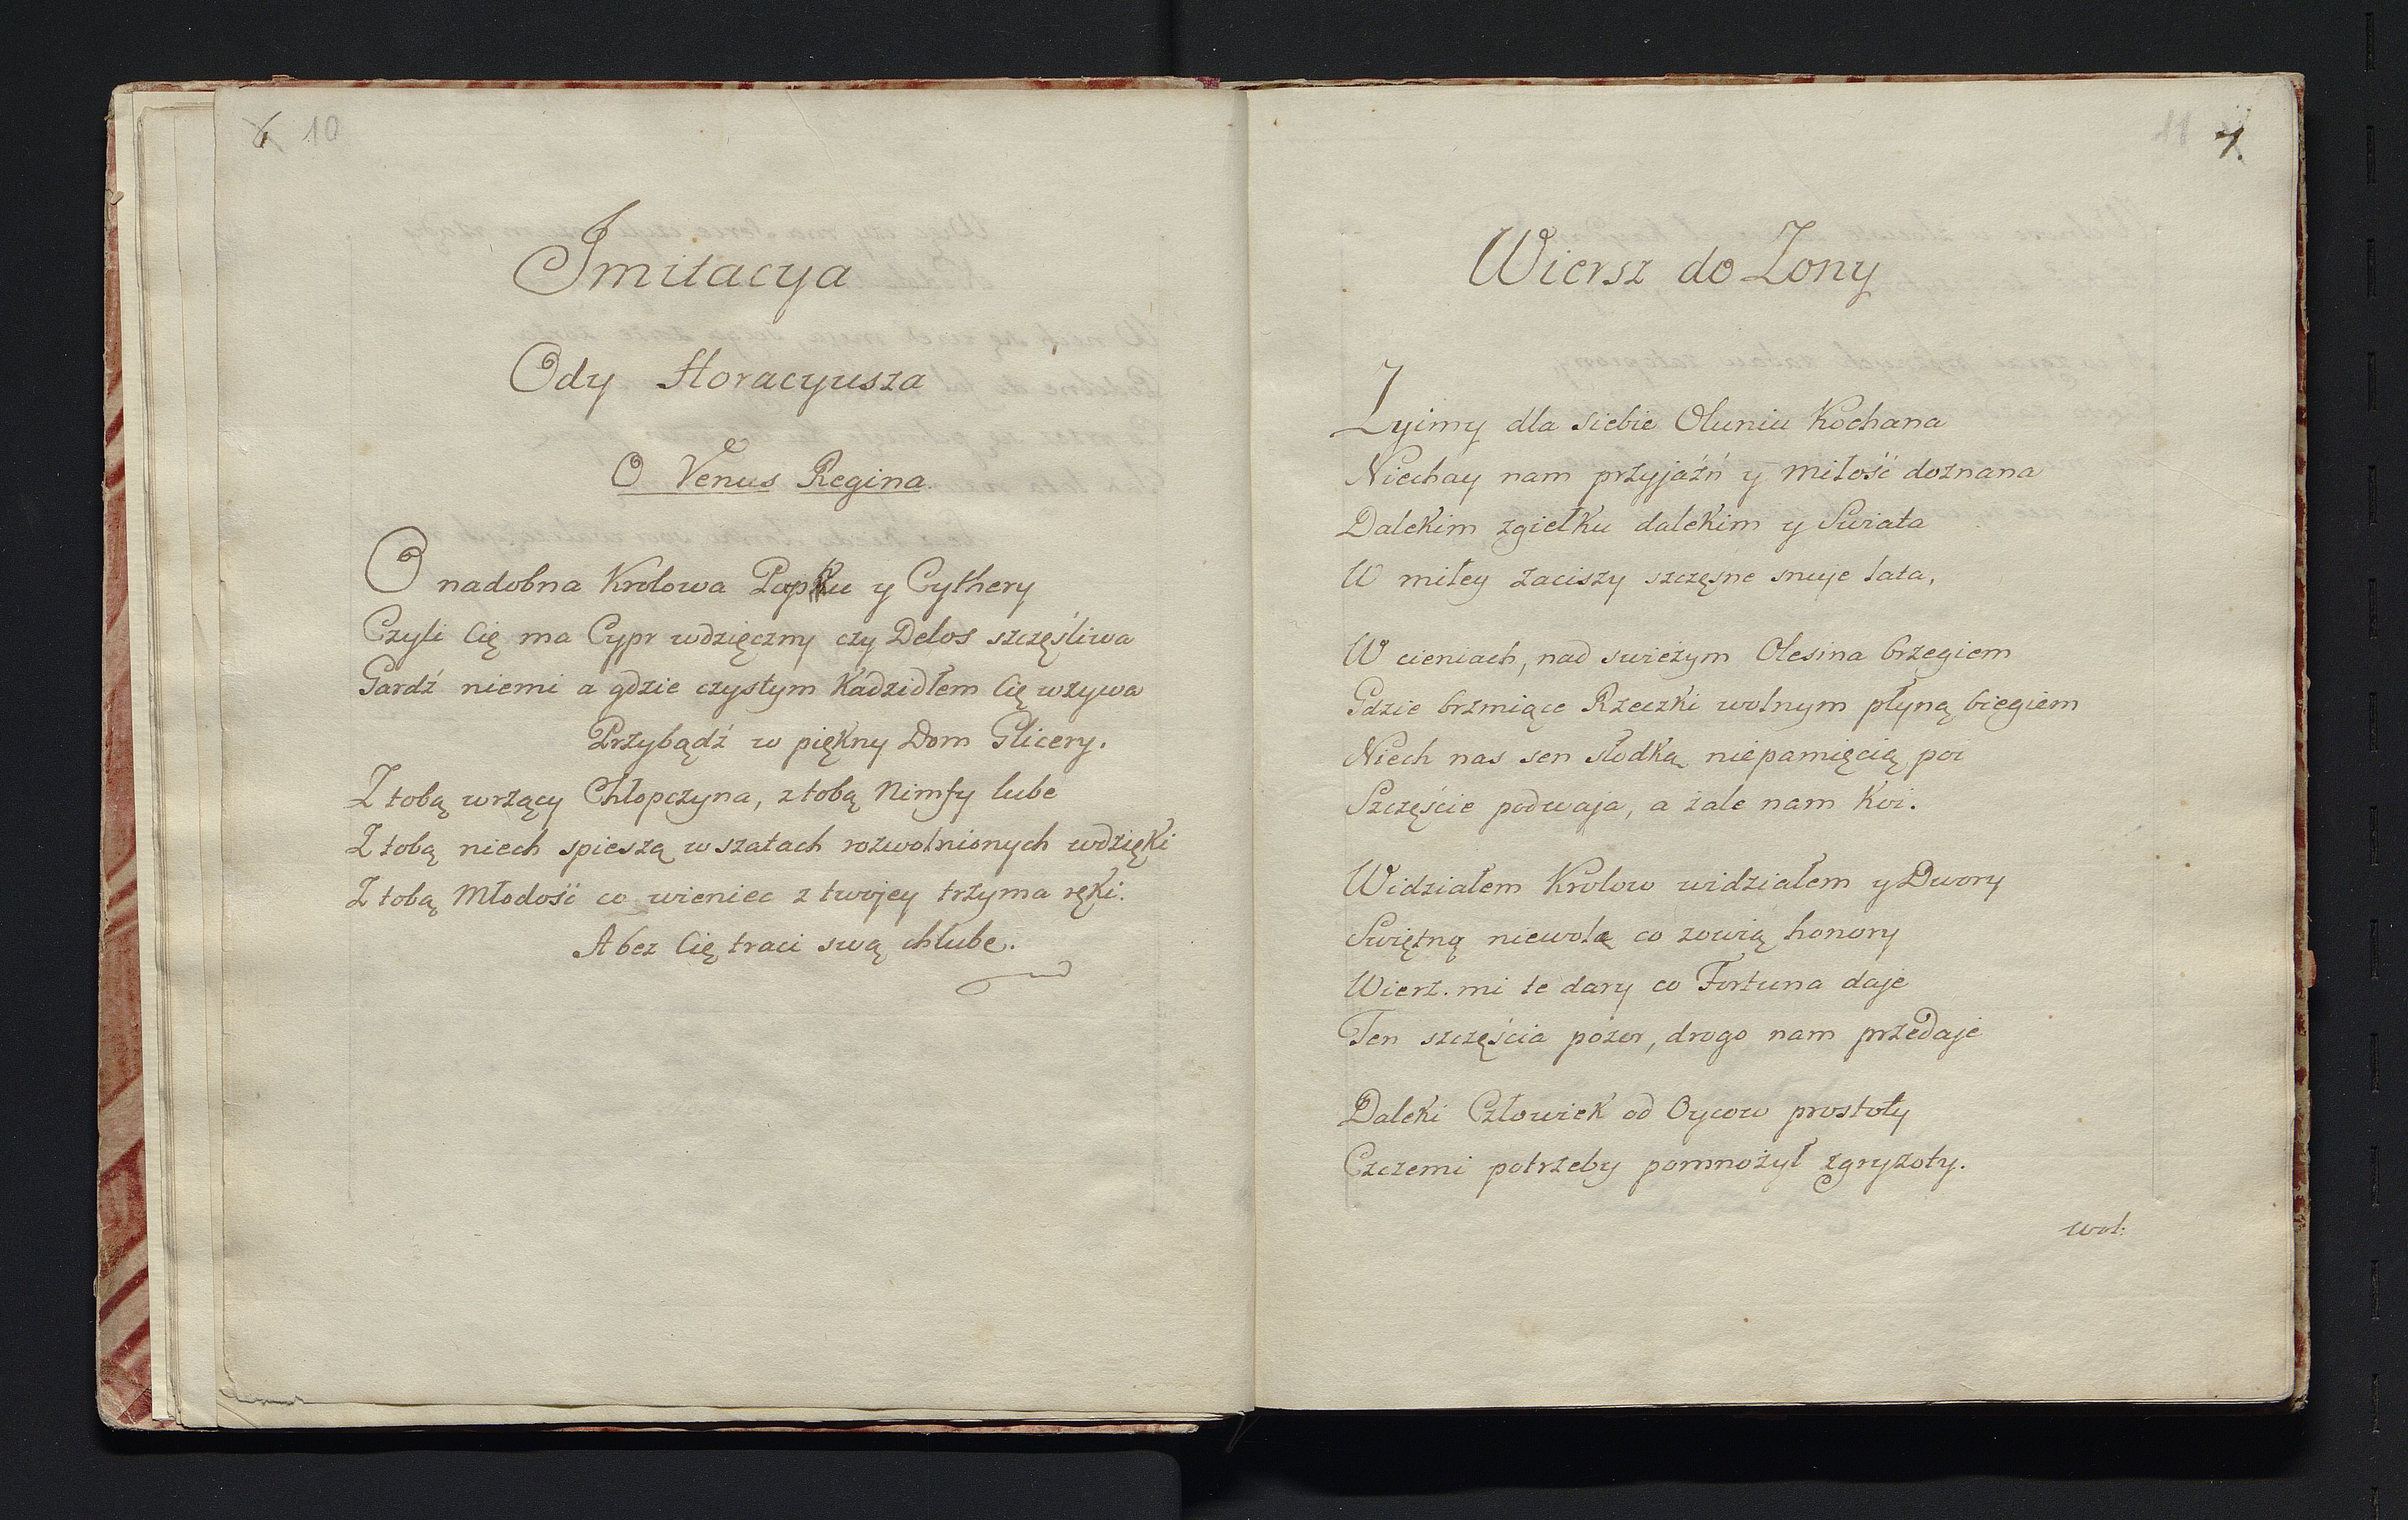 6 10
Imitacya
Ody Horacyusza
O Venus Regina.
O nadobna Krolowa Papku y Cythery
Czyli Cię ma Cypr wdzięczny czy Delos szczęśliwa
Gardź niemi a gdzie czystym Kadzidłem Cię wzywa
Przybądź w piękny Dom Glicery.
Z tobą wrzący Chłopczyna, z tobą Nimfy lube
Z tobą niech spieszą w szatach rozwolnionych wdzięki
Z tobą Młodość co wieniec z twojey trzyma ręki.
A bez Cię traci swą chlubę.
11 7.
Wiersz do Zony
Zyimy dla siebie Oluniu Kochana
Niechay nam przyjaźń y miłość doznana
Dalekim zgiełku dalekim y Swiata
W miłey zaciszy szczęsne snuje lata,
W cieniach, nad swieżym Olesina brzegiem
Gdzie brzmiące Rzeczki wolnym płyną biegiem
Niech nas sen słodką niepamięcią poi
Szczęście podwaja, a żale nam Koi.
Widziałem Krolow widziałem y Dwory
Swiętną niewolą co zowią honory
Wierz. mi te dary co Fortuna daje
Ten szczęścia pozor, drogo nam przedaje
Daleki Człowiek od Oycow prostoty
Czczemi potrzeby pomnożył zgryzoty.
wol: